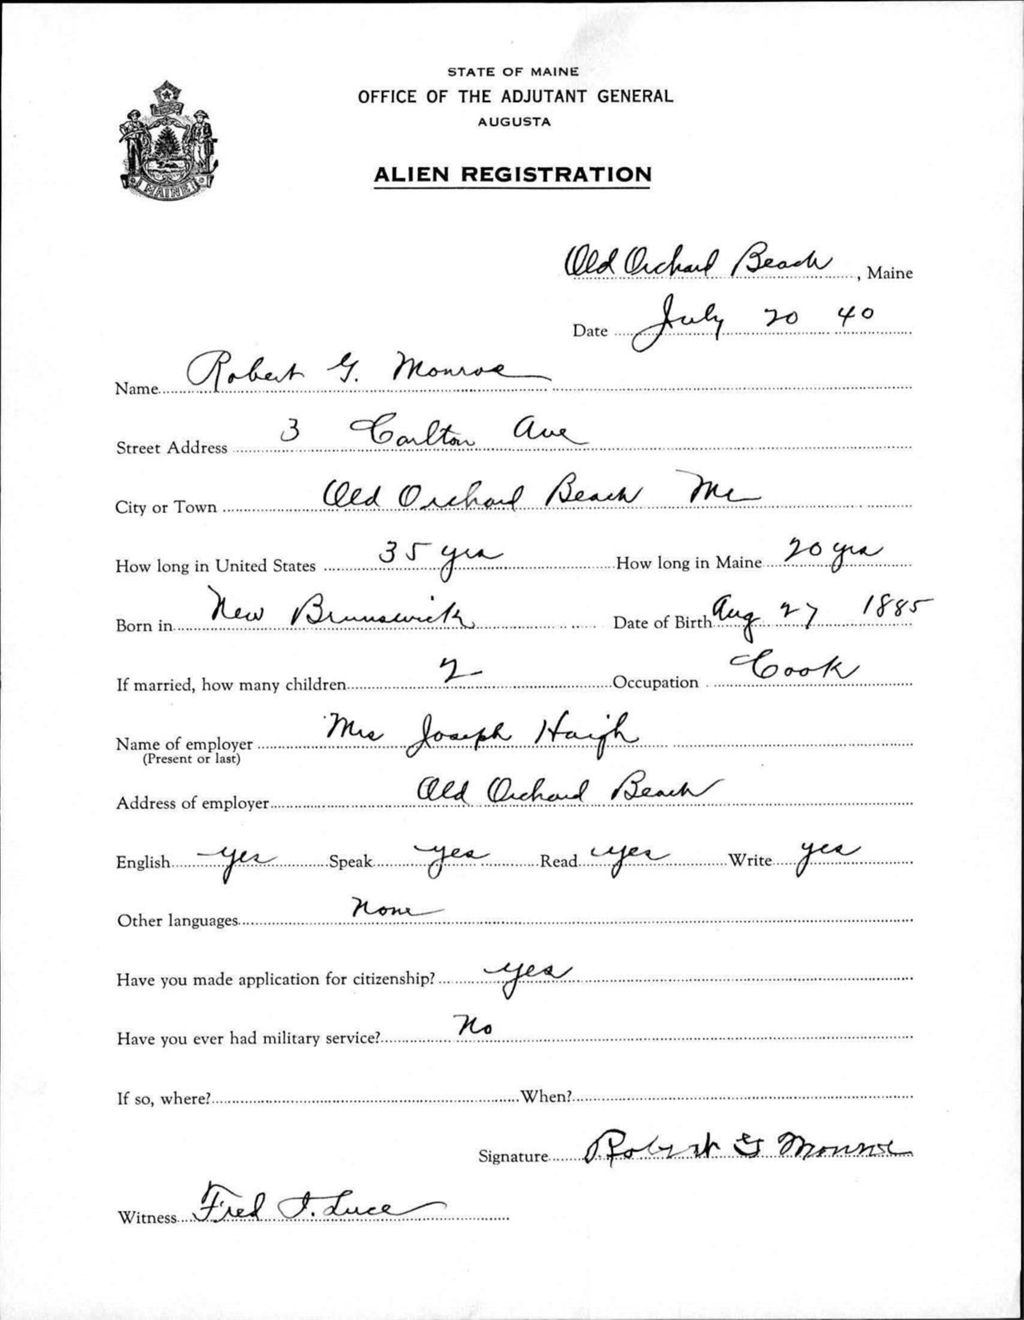 STATE OF MAINE
OFFICE OF THE ADJUTANT GENERAL
AUGUSTA
ALIEN REGISTRATION
MAINE
Old Orchard Beach, Maine
Date July 20 40
Name Robert G. Monroe
Street Address 3 Carlton Ave
City or Town Old Orchard Beach Me
How long in United States 35 yrs How long in Maine 20 yrs
Born in New Brunswick Date of Birth Aug 27 1885
If married, how many children 2 Occupation Cook
Name of employer Mrs Joseph Haigh
(Present or last)
Address of employer Old Orchard Beach
English yes Speak yes Read yes Write yes
Other languages None
Have you made application for citizenship? yes
Have you ever had military service? No
If so, where? When?
Signature Robert G Monroe
Witness Fred I. Luce